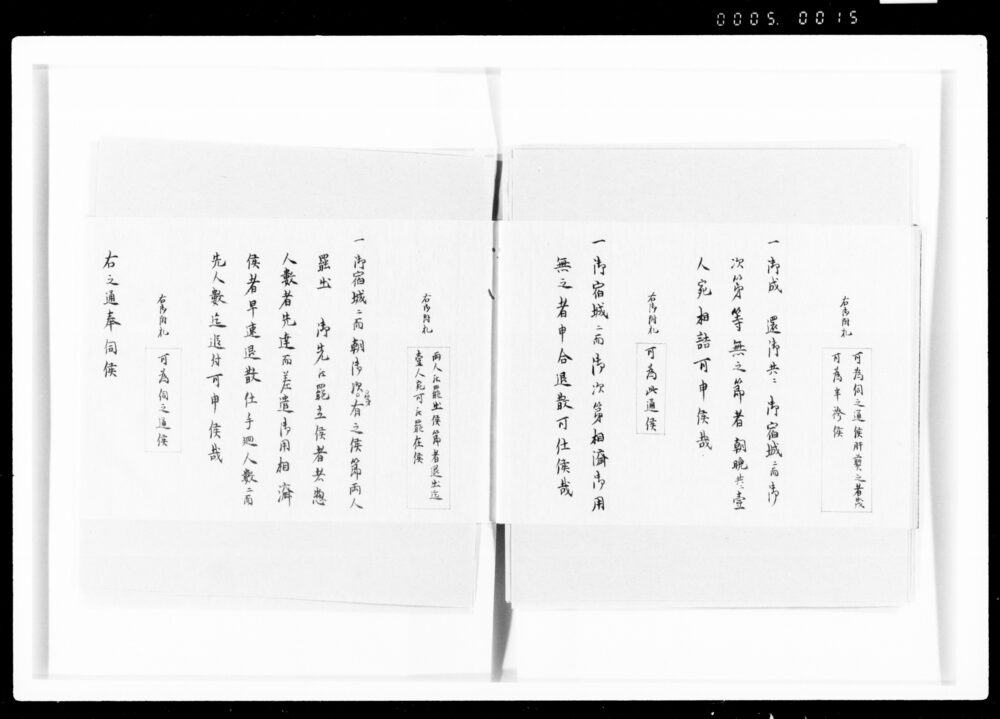 0005.0015
右御附札
可為伺之通候肝要之者共
可為
一 御成 還御共ニ御宿城ニ而御
次第等無之節者朝晩共壹
人宛相詰可申候哉
右御附札
可為此通候
一 御宿城ニ而御次第相濟御用
無之者申合退散可仕候哉
右御附札
両人江罷出候節者退出迄
壹人宛可罷在候
一 御宿城ニ而朝御次第有之候節両人
罷出 御先江罷立候者共惣
人數者先達而差遣御用相濟
候者早速退散仕手廻人數ニ而
先人數迄追付可申候哉
右御附札
可為伺之通候
右之通奉伺候